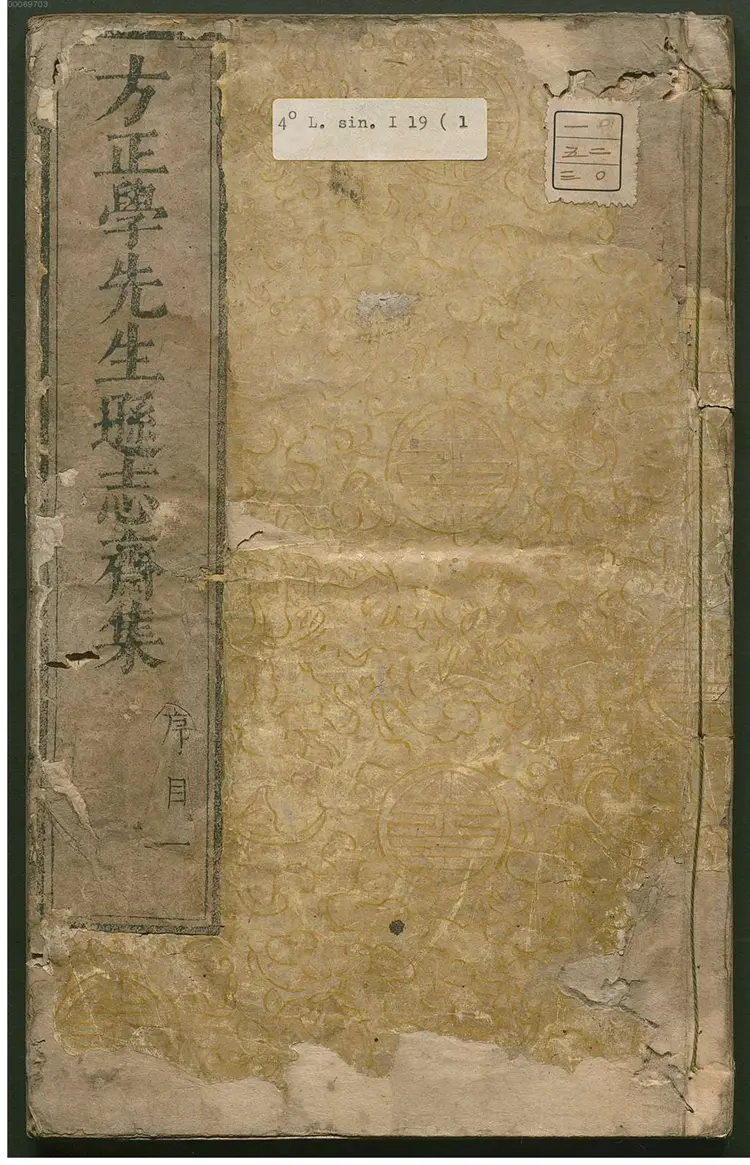 00069703
4° L. sin. I 19 ( 1
一〇
五二
三〇
方正學先生遜志齋集
序目
一